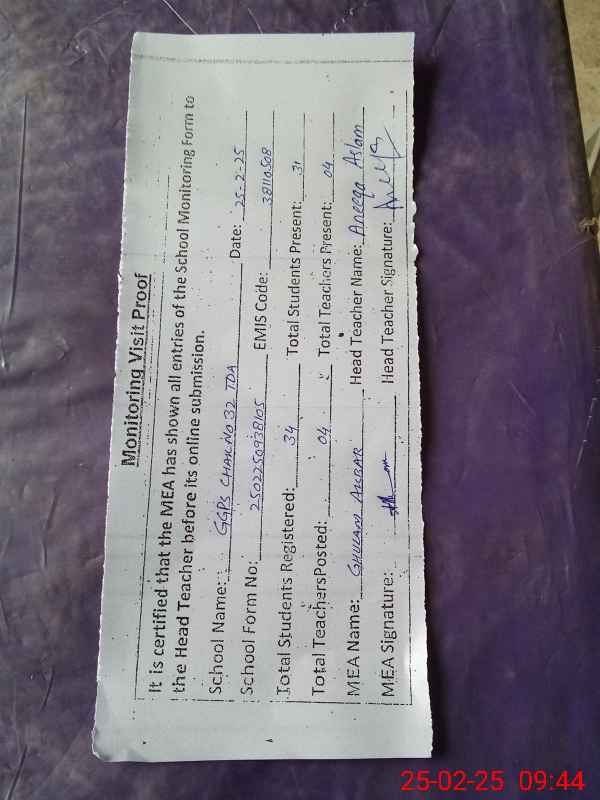 Monitoring Visit Proof
It is certified that the MEA has shown all entries of the School Monitoring Form to
the Head Teacher before its online submission.
School Name: GGPS CHAK NO 32 TDA Date: 25-2-25
School Form No: 2502250938105 EMIS Code: 38110508
Total Students Registered: 34 Total Students Present: 31
Total TeachersPosted: 04 Total Teachers Present: 04
MEA Name: GHULAM AKBAR Head Teacher Name: Aneeqa Aslam
MEA Signature: Head Teacher Signature:
25-02-25 09:44